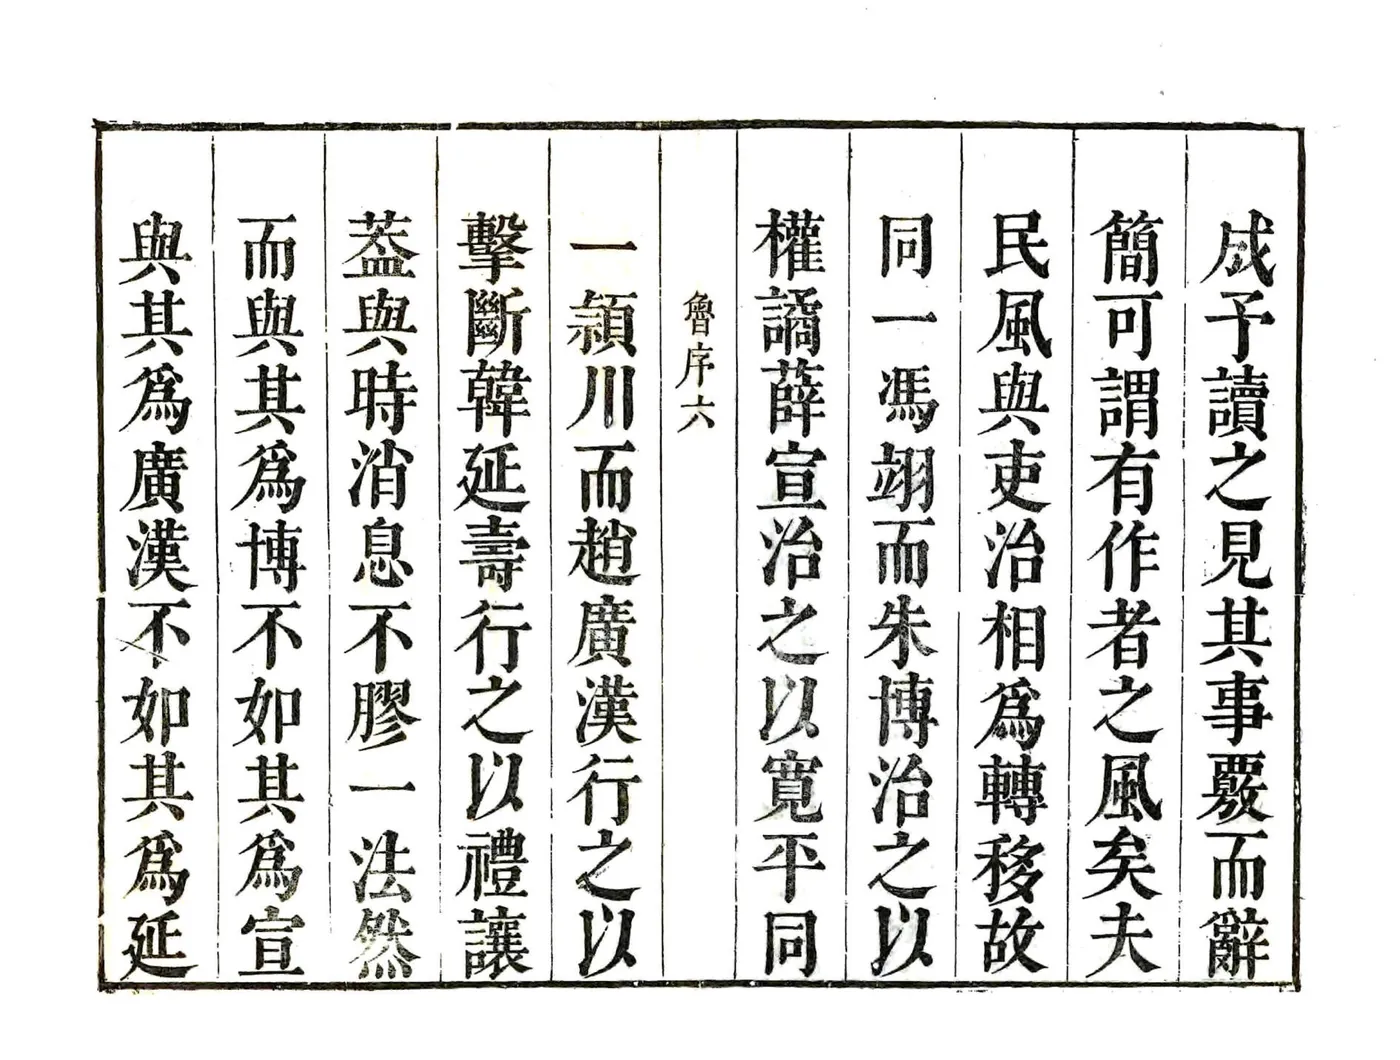 成予讀之見其事覈而辭
簡可謂有作者之風矣夫
民風與吏治相爲轉移故
同一馮翊而朱博治之以
權譎薛宣治之以寬平同
魯序六
一潁川而趙廣漢行之以
擊斷韓延壽行之以禮讓
葢與時消息不膠一法然
而與其爲博不如其爲宣
與其爲廣漢不如其爲延